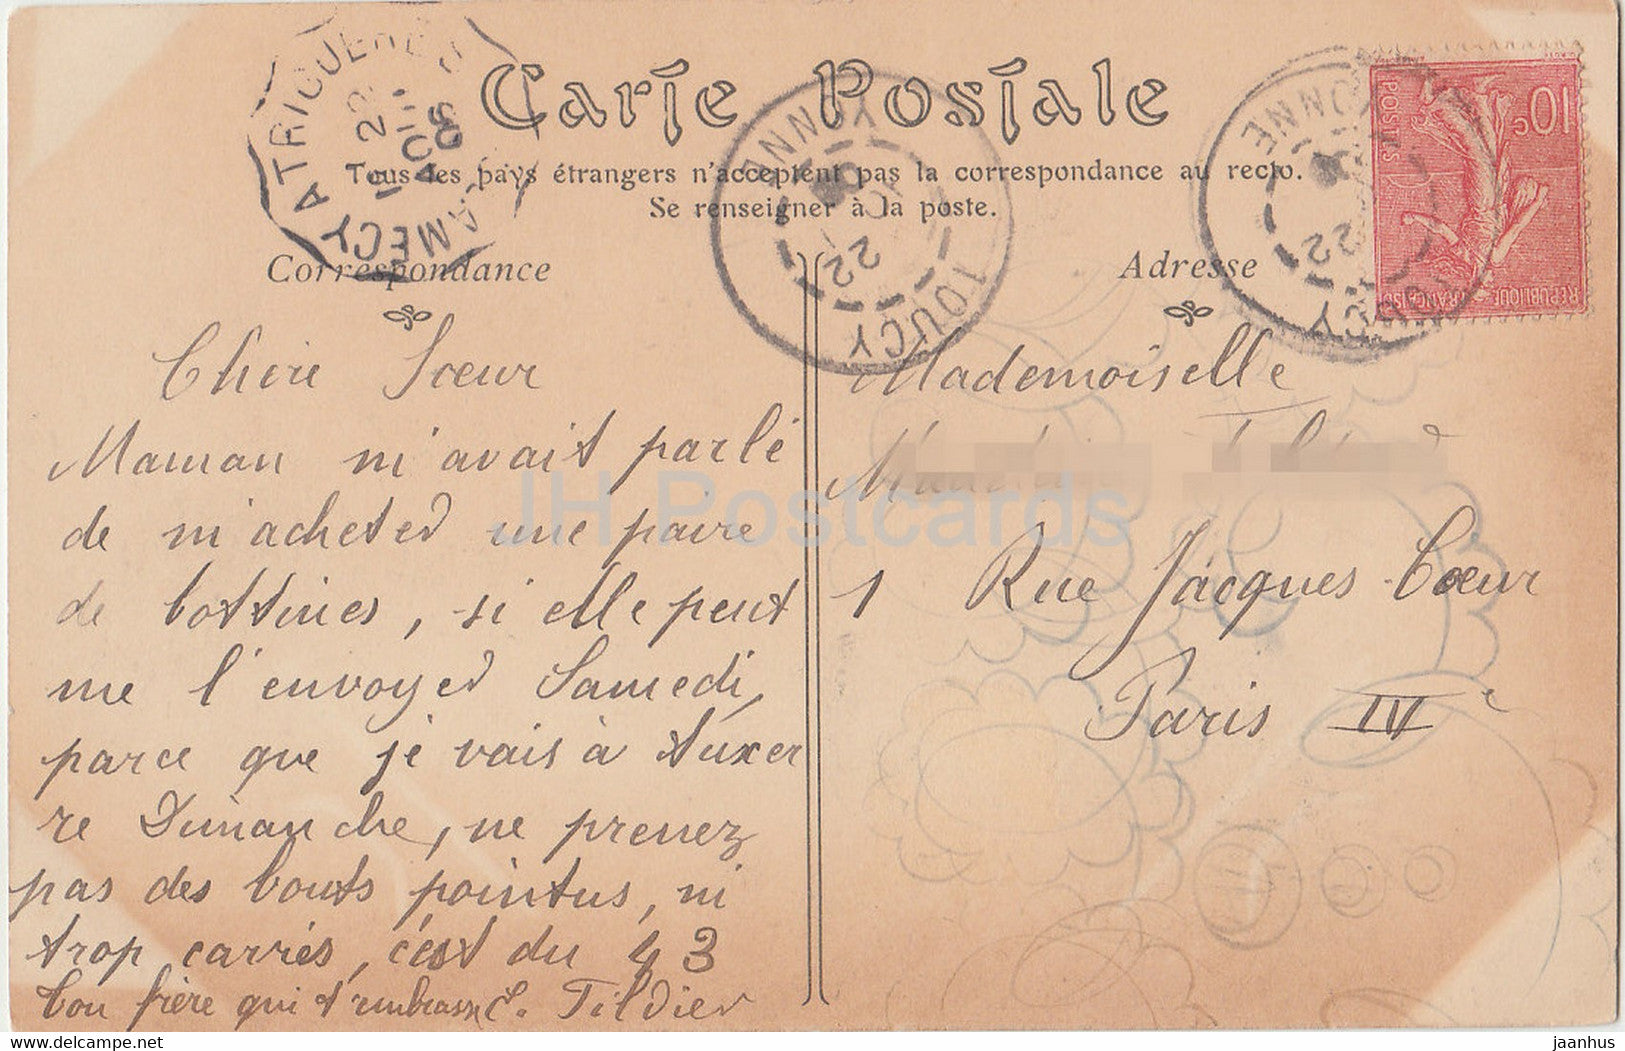 Carte Postale
Tous les pays étrangers n'acceptent pas la correspondance au recto.
Se renseigner à la poste.
Correspondance
Adresse
Chère Sœur
Maman m'avait parlé
de m'acheter une paire
de bottines, si elle peut
me l'envoyer Samedi,
parce que je vais à Auxer
re Dimanche, ne prenez
pas des bouts pointus, ni
trop carrés, c'est du 43
ton frère qui t'embrasse
Mademoiselle
1 Rue Jacques Cœur
Paris IVe
TRIGUÈRES A CLAMECY
22
OCT
05
TOUCY YONNE
22
TOUCY YONNE
22
10c
POSTES
REPUBLIQUE FRANÇAISE
JH Postcards
hip.com
jaanhus